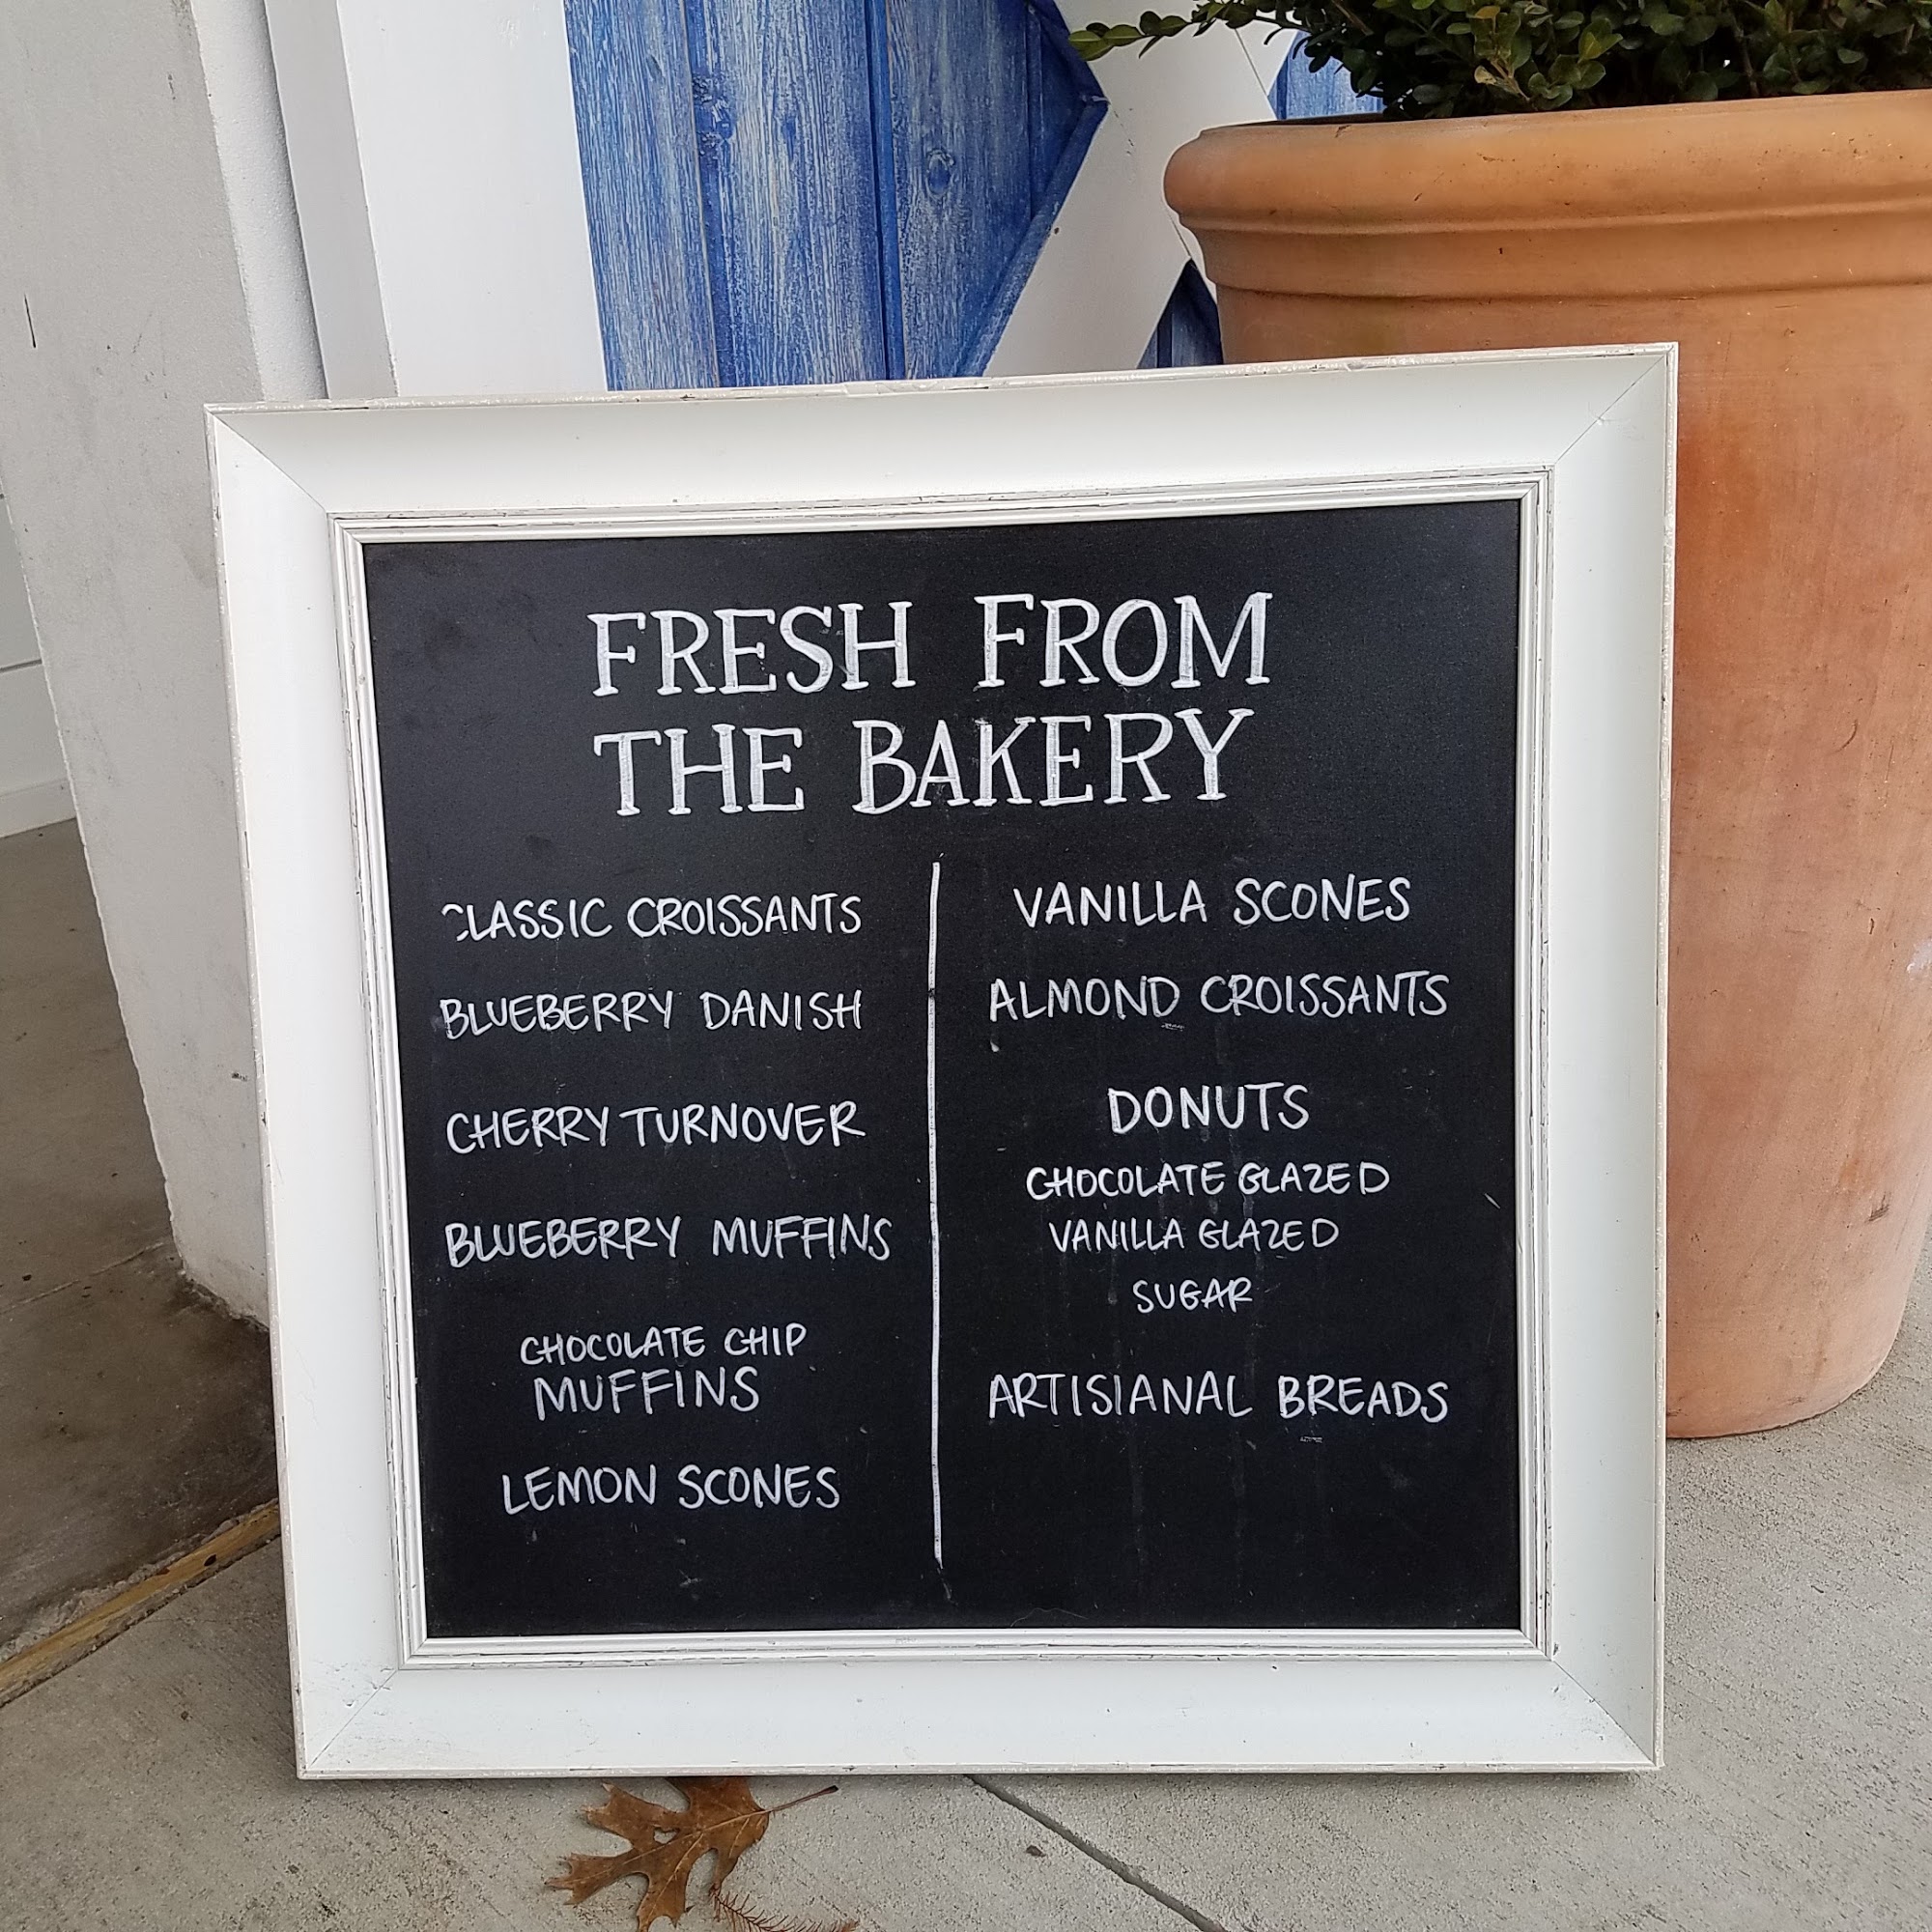 FRESH FROM
THE BAKERY
CLASSIC CROISSANTS
BLUEBERRY DANISH
CHERRY TURNOVER
BLUEBERRY MUFFINS
CHOCOLATE CHIP
MUFFINS
LEMON SCONES
VANILLA SCONES
ALMOND CROISSANTS
DONUTS
CHOCOLATE GLAZED
VANILLA GLAZED
SUGAR
ARTISIANAL BREADS